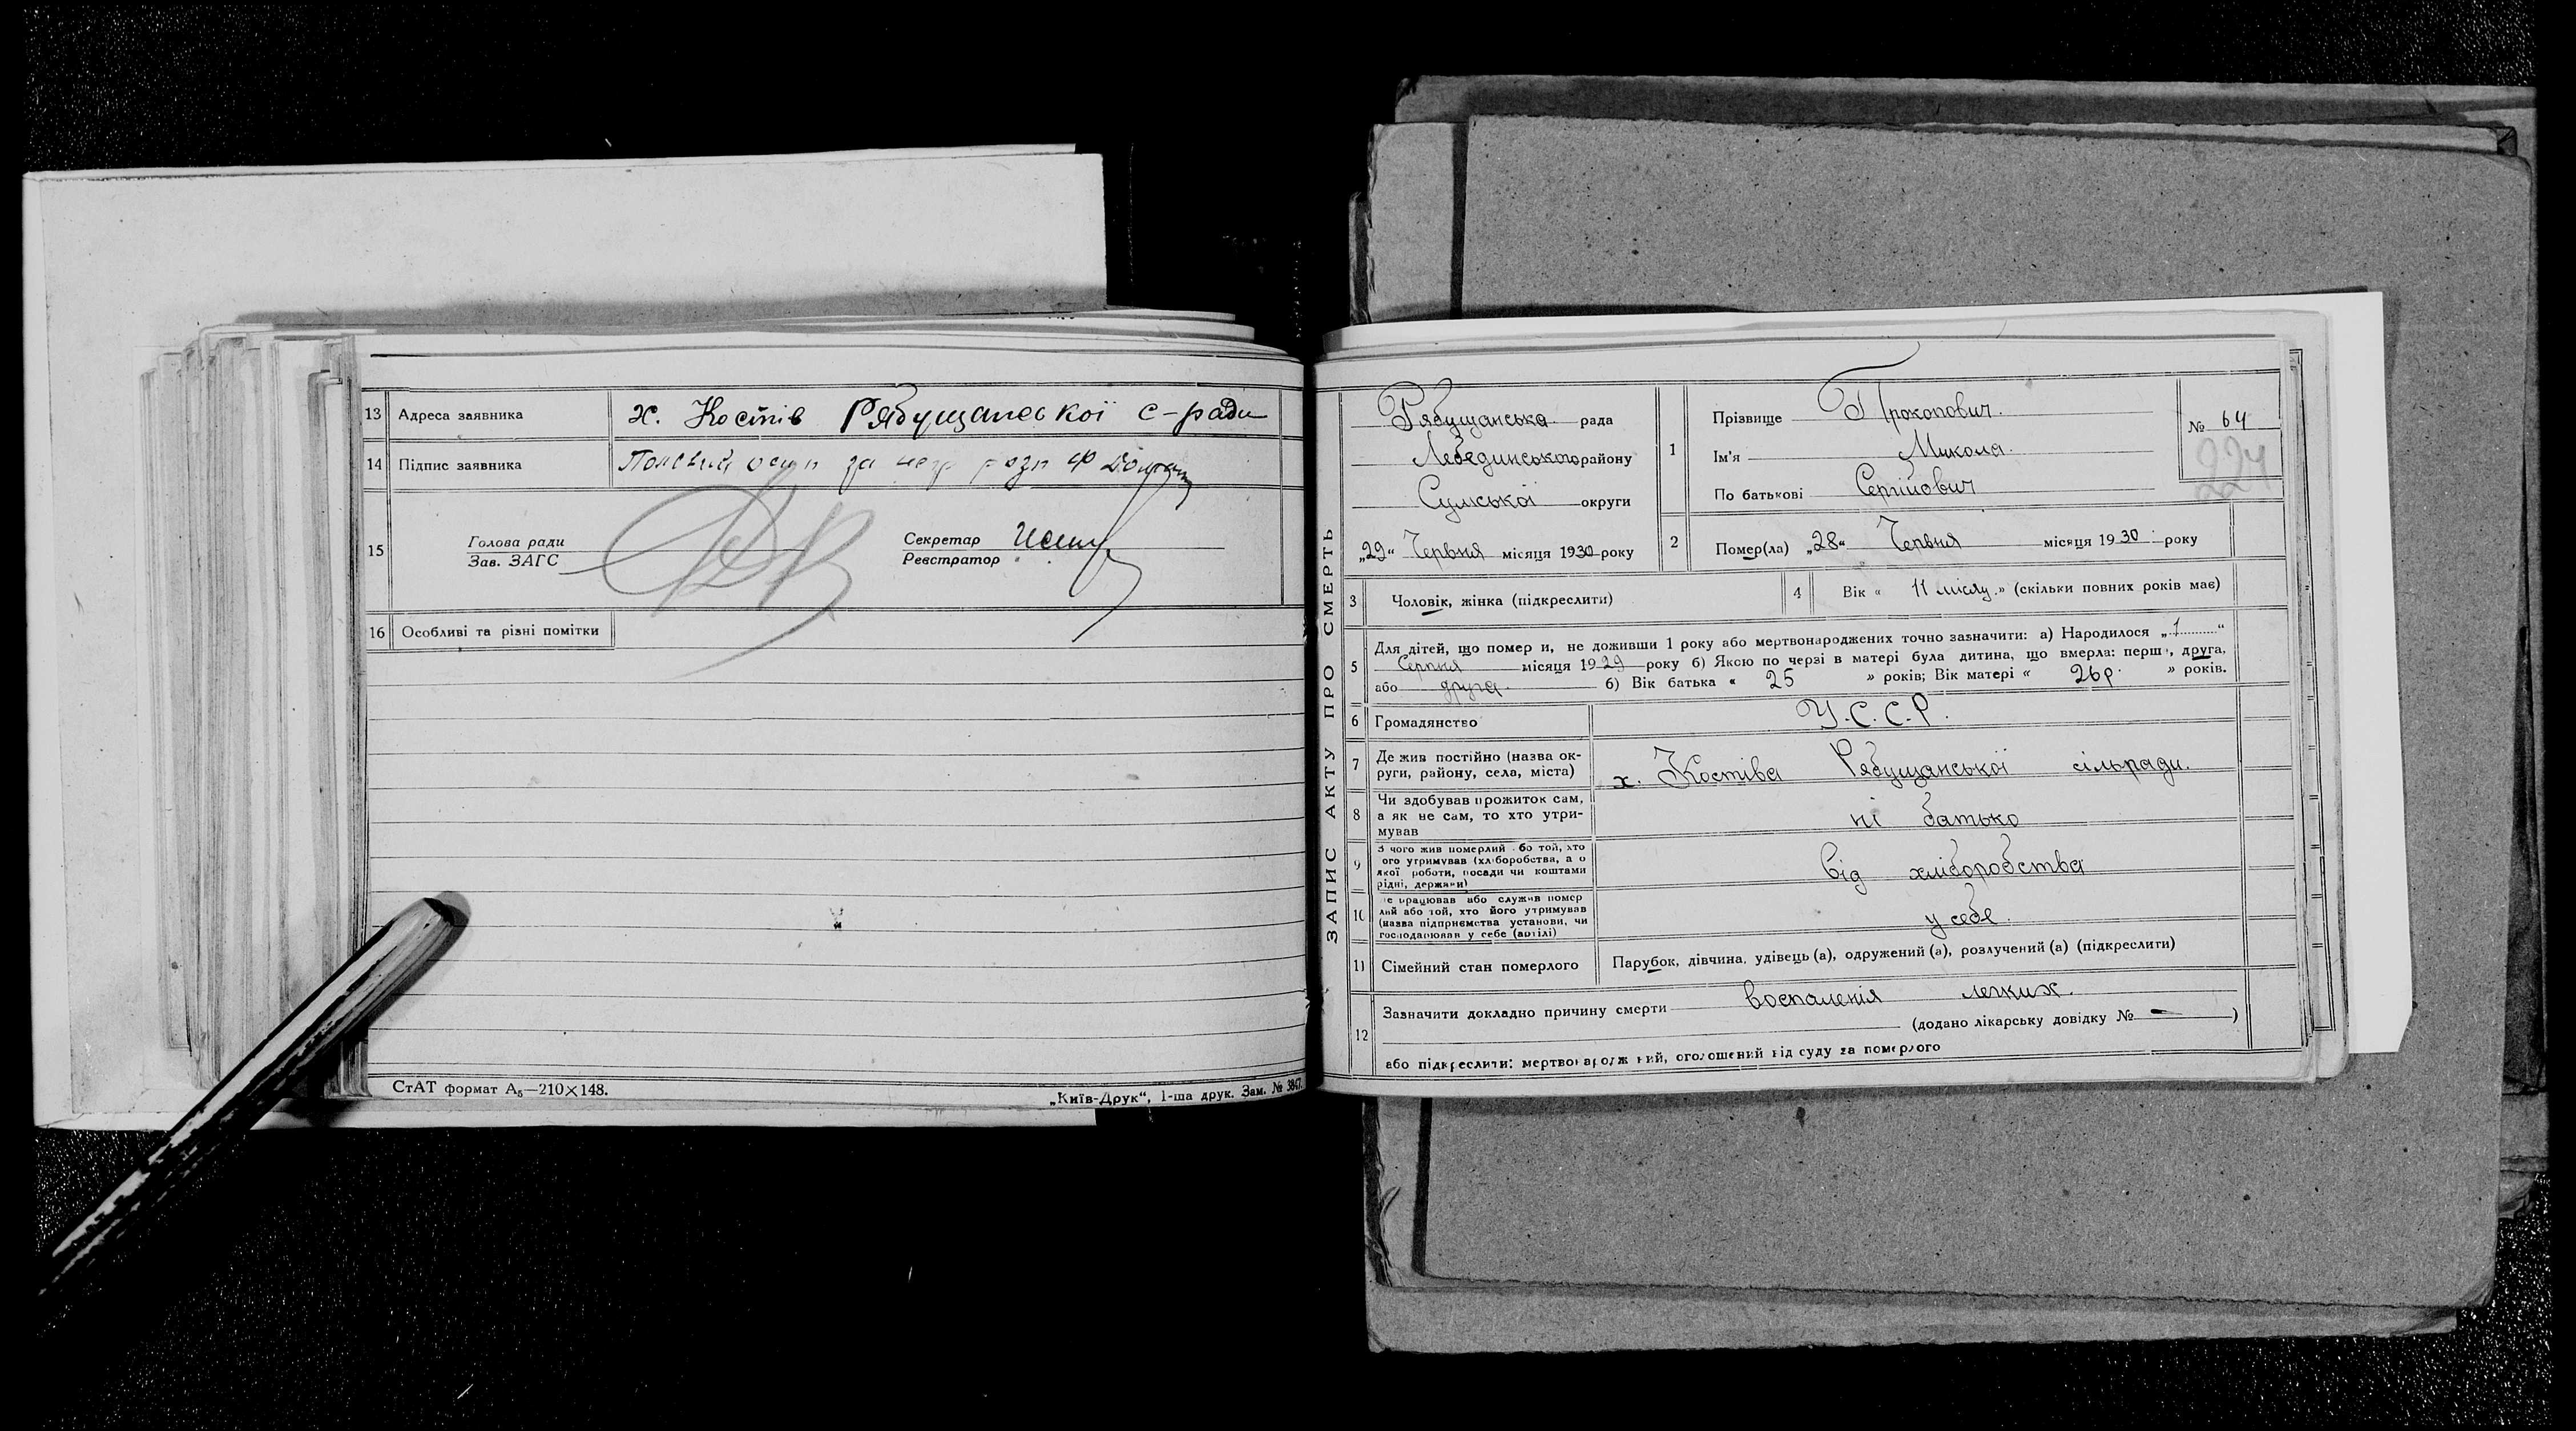 13 Адреса заявника х. Костів Рябущанської с-ради
14 Підпис заявника за
15 Голова ради
Зав. ЗАГС
Секретар
Реєстратор
16 Особливі та різні помітки
СтАТ формат А₅—210×148.
„Київ-Друк“, 1-ша друк. Зам. № 3847.
ЗАПИС АКТУ ПРО СМЕРТЬ
Рябущанська рада
Лебединського району
Сумської округи
„29“ Червня місяця 1930 року
1 Прізвище Прокопович.
Ім'я Микола.
По батькові Сергійович
№ 64
224
2 Помер(ла) „28“ Червня місяця 1930 року
3 Чоловік, жінка (підкреслити)
4 Вік « 11 місяц.» (скільки повних років має)
5 Для дітей, що помер и, не доживши 1 року або мертвонароджених точно зазначити: а) Народилося „1“
Серпня місяця 1929 року б) Якою по черзі в матері була дитина, що вмерла: перш , друга,
або друга. б) Вік батька « 25 » років; Вік матері « 26 р. » років.
6 Громадянство У.С.С.Р.
7 Де жив постійно (назва ок-
руги, району, села, міста) х. Костіва Рябущанської сільради.
8 Чи здобував прожиток сам,
а як не сам, то хто утри-
мував ні батько
9 З чого жив померлий бо той, хто
ого утримував (хліборобства, а о
якої роботи, посади чи коштами
рідні, держави) від хліборобства
10 е працював або служив помер
лий або той, хто його утримував
(назва підприємства установи, чи
господарював у себе (артілі) у себе.
11 Сімейний стан померлого Парубок, дівчина, удівець (а), одружений (а), розлучений (а) (підкреслити)
12 Зазначити докладно причину смерти воспаленія легких.
(додано лікарську довідку № — )
або підкреслити: мертвонародж ний, оголошений від суду за померлого